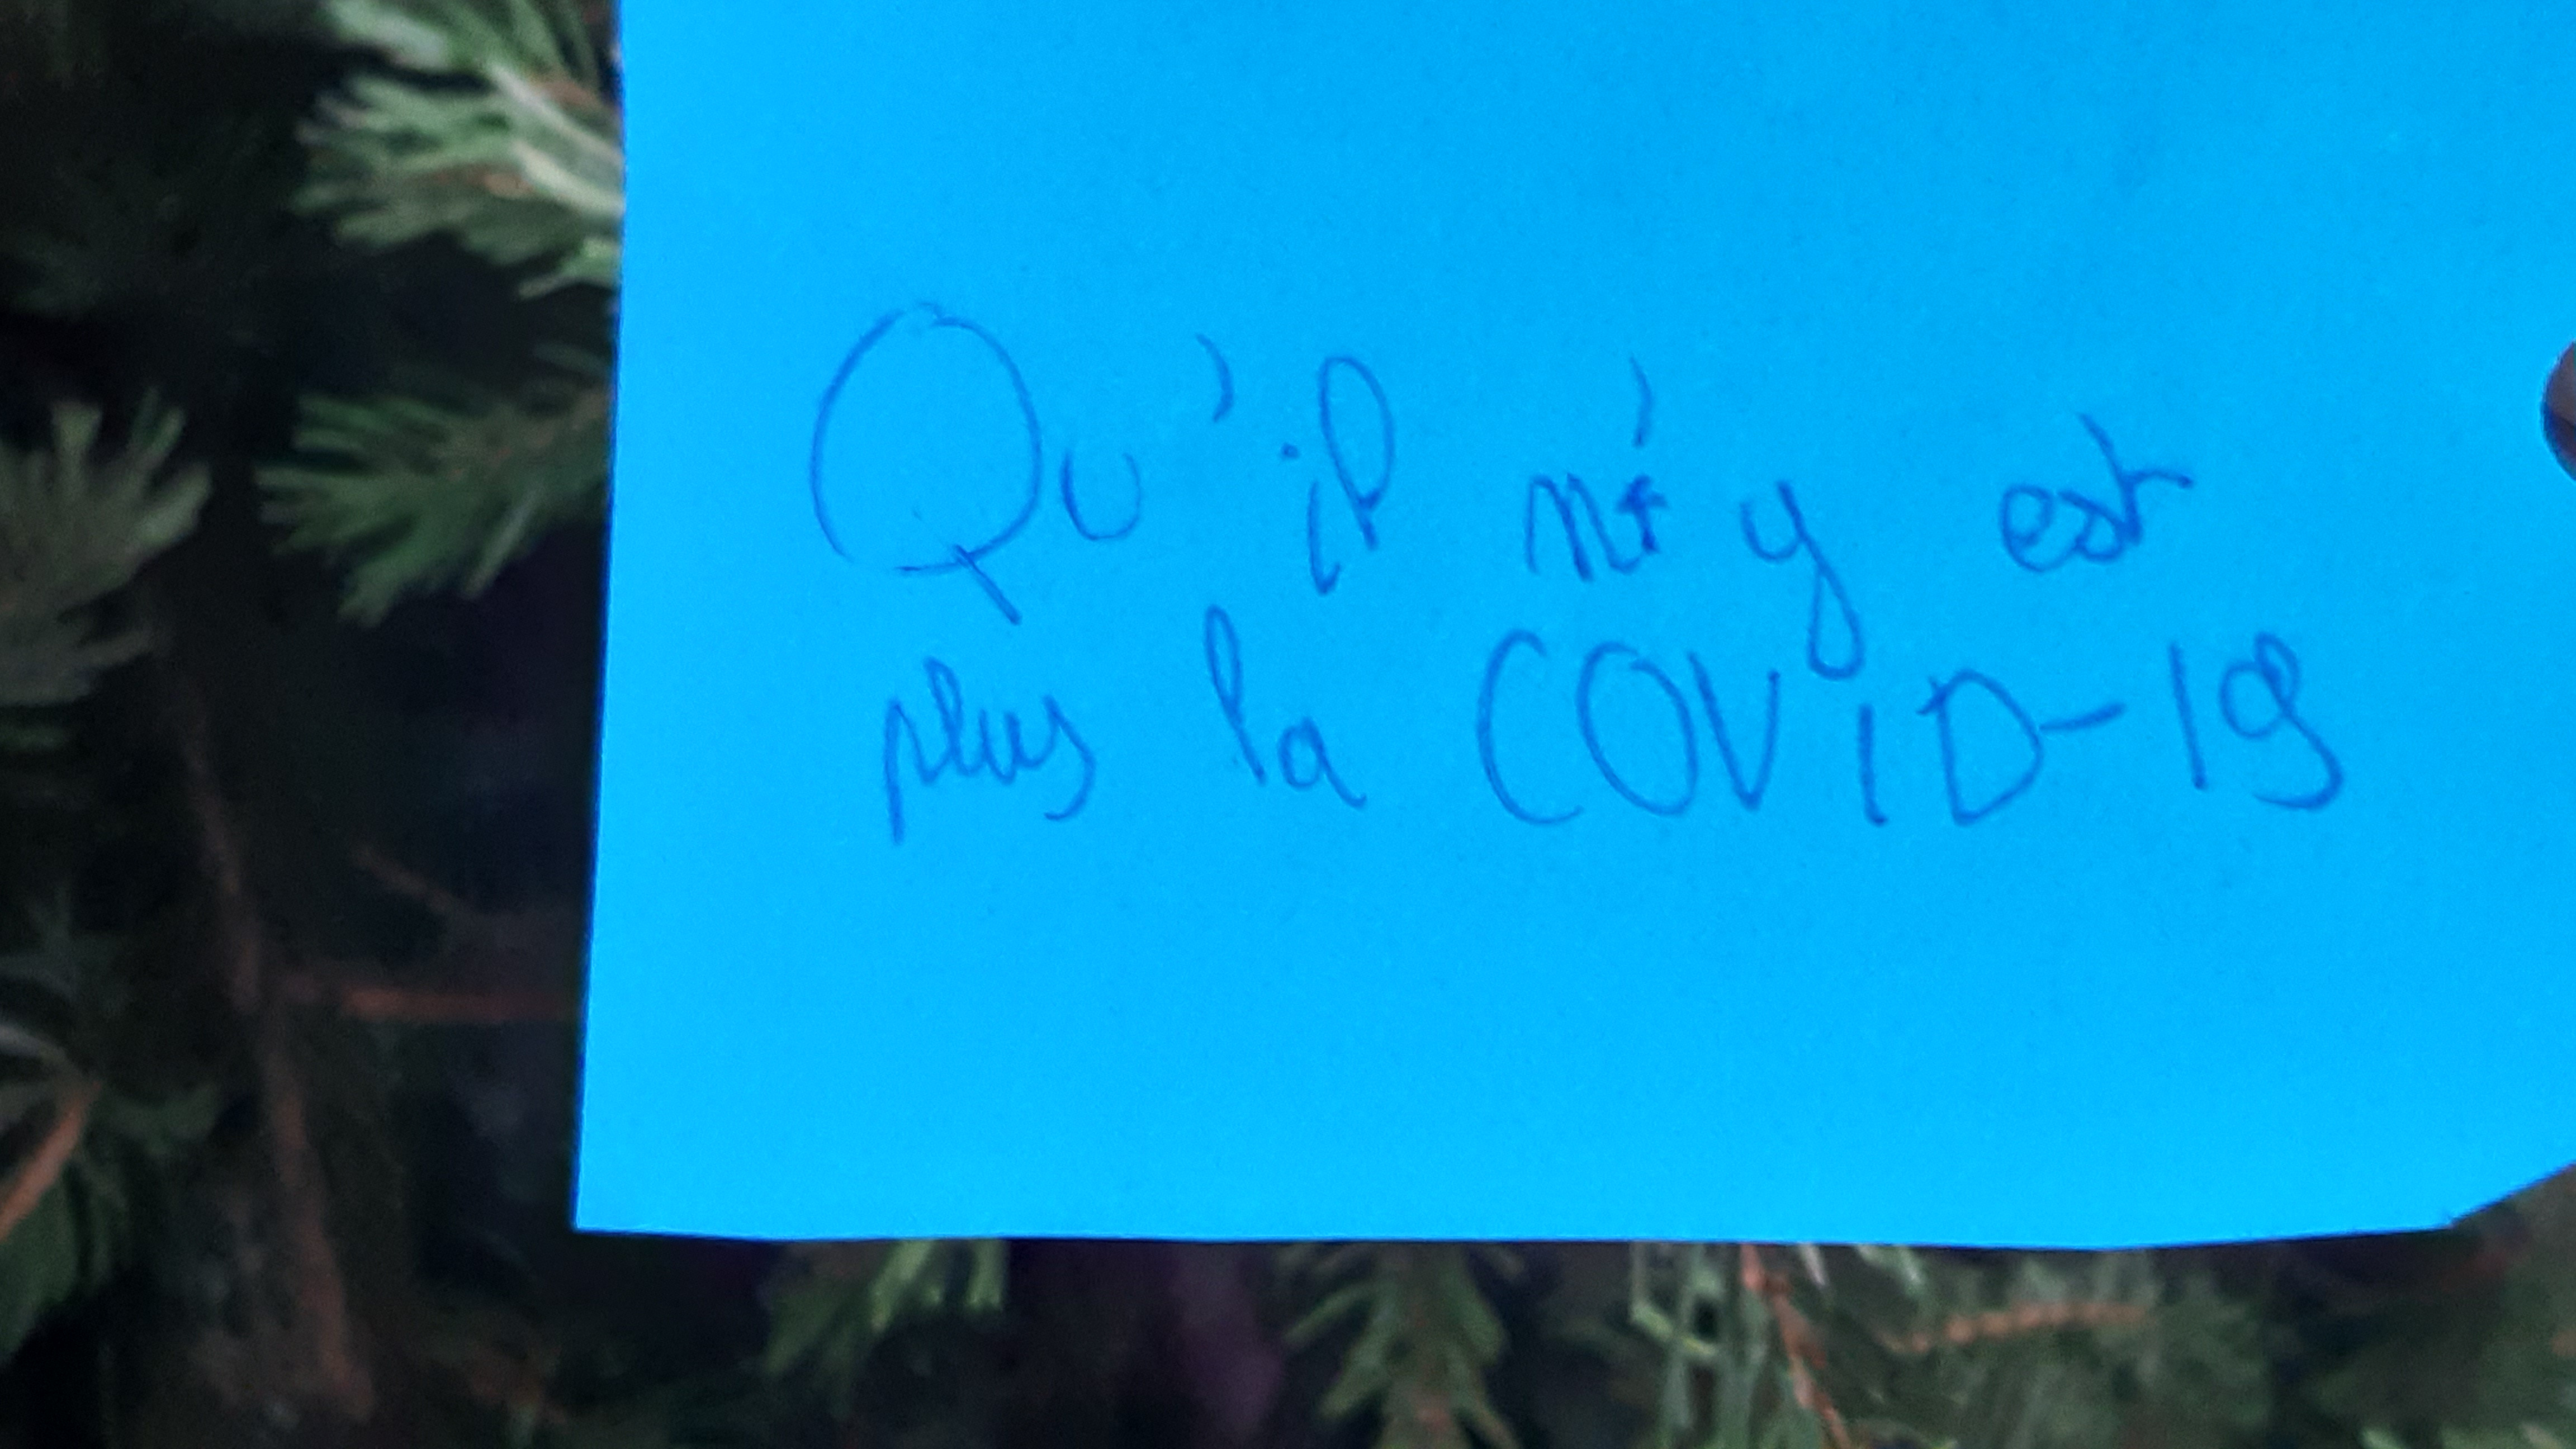 Qu'il n'y est
plus la COVID-19